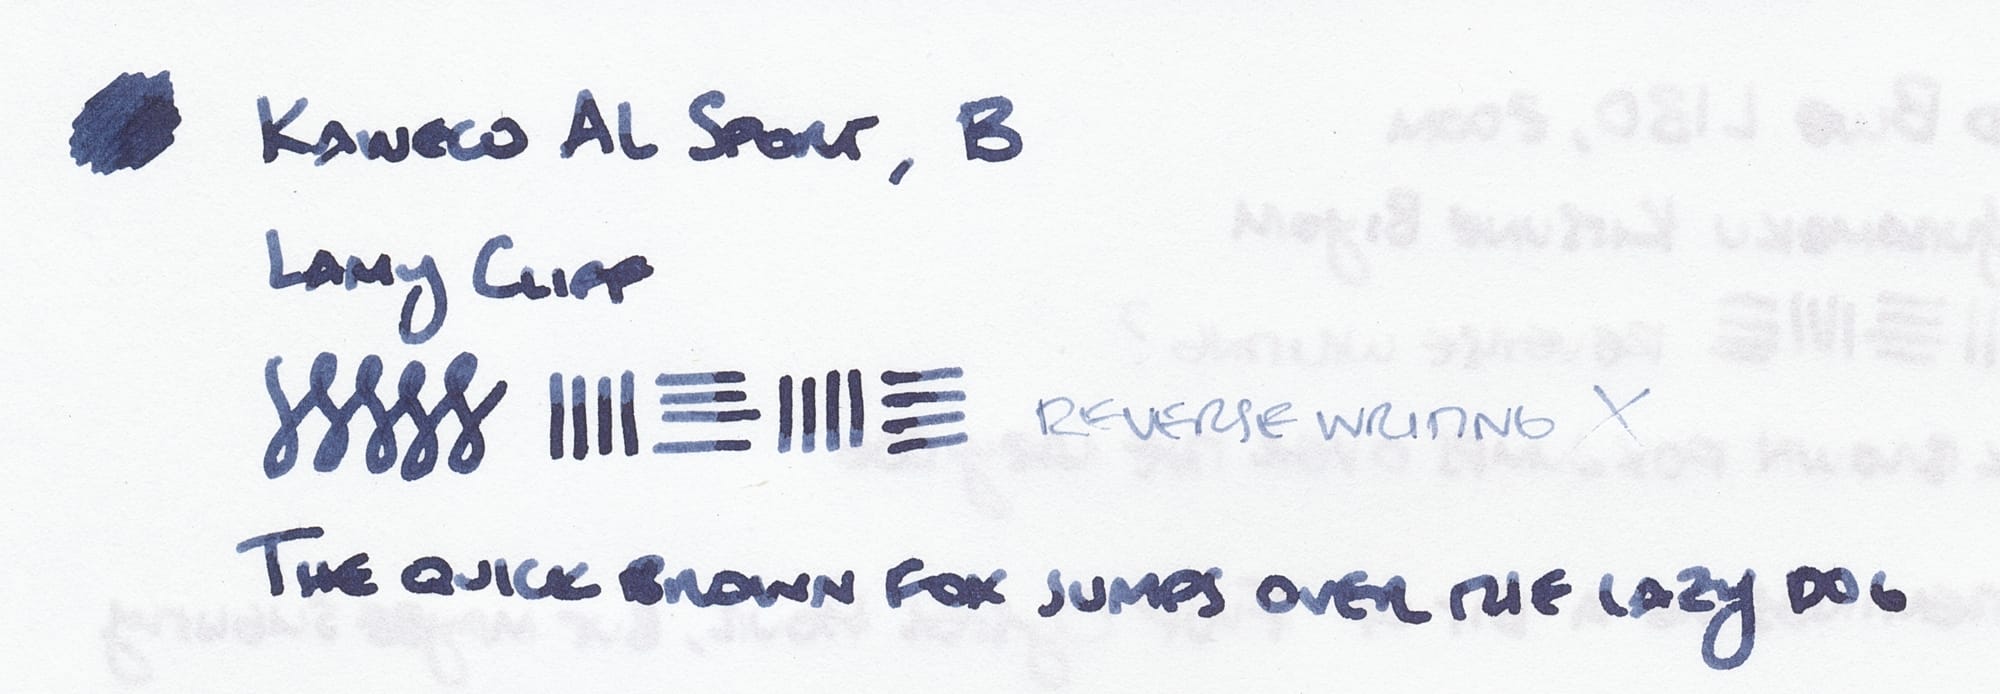 KAWECO AL SPORT, B
LAMY CLIFF
REVERSE WRITING X
THE QUICK BROWN FOX JUMPS OVER THE LAZY DOG